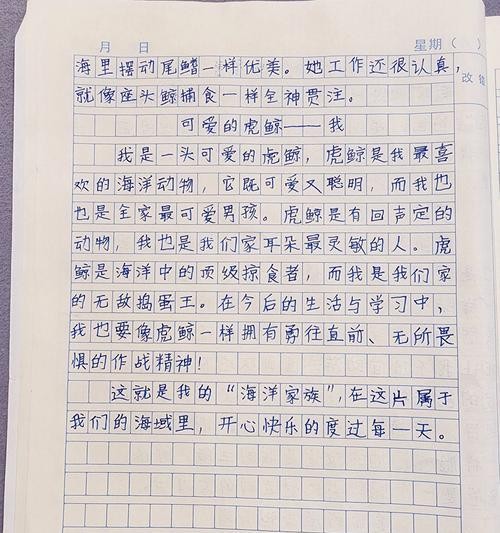 月 日 星期（ ）
海里摆动尾鳍一样优美。她工作还很认真，
改错
就像座头鲸捕食一样全神贯注。
可爱的虎鲸——我
我是一头可爱的虎鲸，虎鲸是我最喜
欢的海洋动物，它既可爱又聪明，而我也
也是全家最可爱男孩。虎鲸是有回声定的
动物，我也是我们家耳朵最灵敏的人。虎
鲸是海洋中的顶级掠食者，而我是我们家
的无敌捣蛋王。在今后的生活与学习中，
我也要像虎鲸一样拥有勇往直前、无所畏
惧的作战精神！
这就是我的“海洋家族”，在这片属于
我们的海域里，开心快乐的度过每一天。